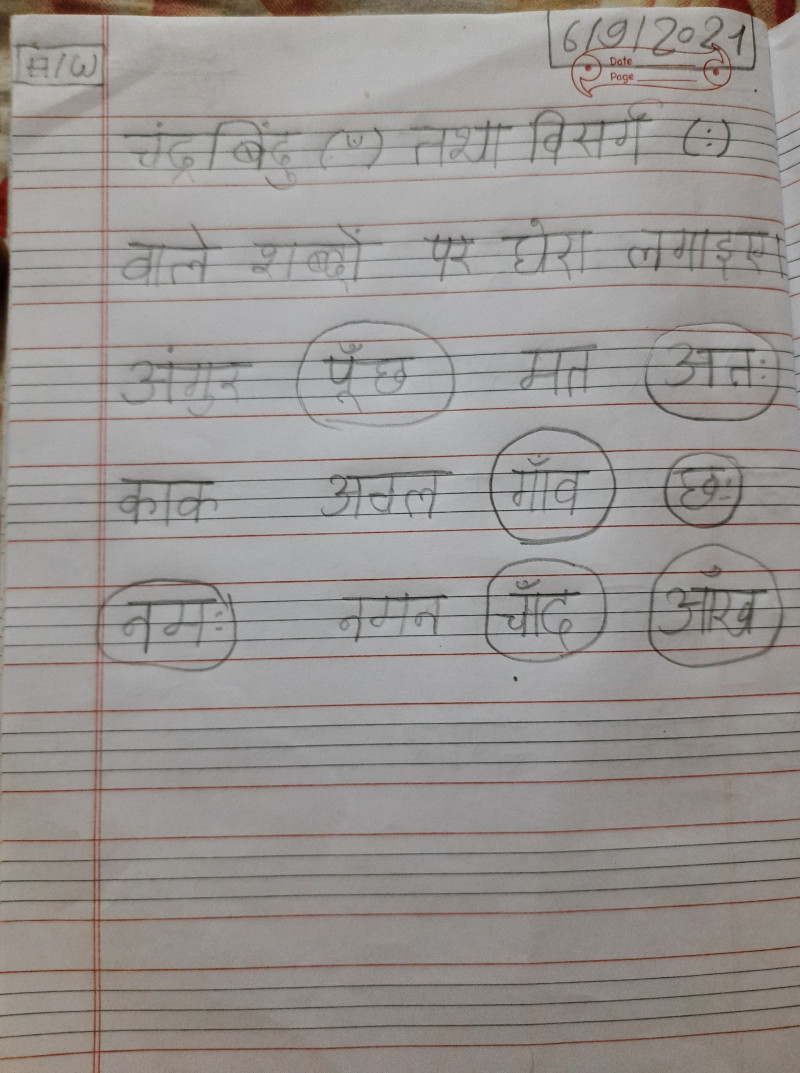 6/9/2021
H/W
Date
Page
चंद्रबिंदु (ँ) तथा विसर्ग (ः)
वाले शब्दों पर घेरा लगाइए
अंगुर पूँछ मत अतः
काक अचल गाँव छः
नमः नमन चाँद आँख